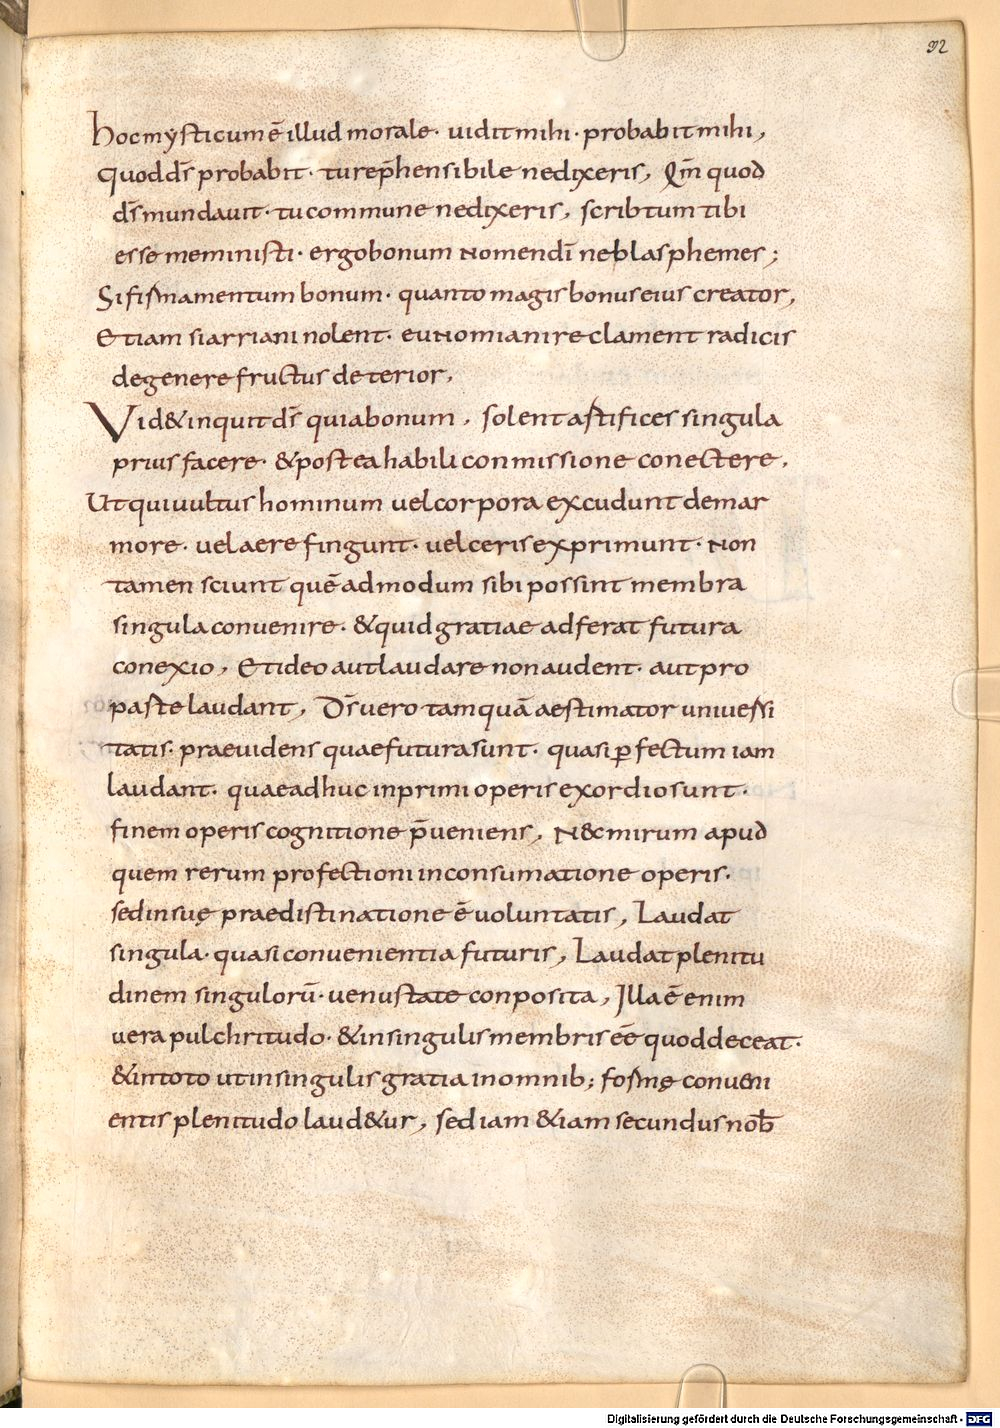 92
hoc mysticum ē illud morale· uidit mihi· probabit mihi,
quod dr̄ probabit· tu rep̄hensibile ne dixeris, Qm̄ quod
dr̄ mundauit· tu commune ne dixeris, scribtum tibi
esse meministi· ergo bonum nomen dī ne blasphemes;
Si firmamentum bonum· quanto magis bonus eius creator,
Etiam si arriani nolent· eunomiani reclament radicis
degenere fructus deterior,
Vid& inquit dr̄ quia bonum, solent artifices singula
prius facere· & postea habili conmissione conectere,
Ut qui uultus hominum uel corpora excudunt de mar
more· uel aere fingunt· uel ceris exprimunt· Non
tamen sciunt quē admodum sibi possint membra
singula conuenire· & quid gratiae adferat futura
conexio, Et ideo aut laudare non audent· aut pro
parte laudant, Dr̄ uero tamquā aestimator uniuersi
tatis· praeuidens quae futura sunt· quasi ꝑfectum iam
laudant· quae adhuc in primi operis exordio sunt·
finem operis cognitione p̄ueniens, N&c mirum apud
quem rerum profectioni in consumatione operis·
sed in suę praedistinatione ē uoluntatis, Laudat
singula· quasi conuenientia futuris, Laudat plenitu
dinem singulorū· uenustate conposita, Illa ē enim
vera pulchritudo· & in singulis membris eē quod deceat·
& in toto ut in singulis gratia in omnib; formę conueni
entis plenitudo laud&ur, sed iam & iam secundus nob̄
Digitalisierung gefördert durch die Deutsche Forschungsgemeinschaft - DFG